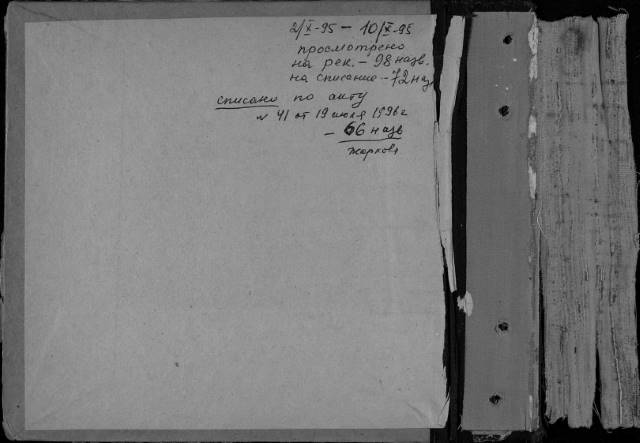 2/X-95 – 10/X-95
просмотрено
на рек. – 98 назв.
на списание – 72 наз
списано по акту
№ 41 от 19 июля 1996 г
– 66 назв
Жаркова